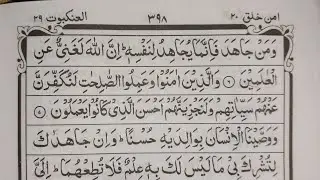 امن خلق ٢٠ ٣٩٨ العنكبوت ٢٩
وَمَنْ جَاهَدَ فَاِنَّمَا يُجَاهِدُ لِنَفْسِهٖ ؕ اِنَّ اللّٰهَ لَغَنِيٌّ عَنِ
الْعٰلَمِيْنَ ۝٦ وَالَّذِيْنَ اٰمَنُوْا وَعَمِلُوا الصّٰلِحٰتِ لَنُكَفِّرَنَّ
عَنْهُمْ سَيِّاٰتِهِمْ وَلَنَجْزِيَنَّهُمْ اَحْسَنَ الَّذِيْ كَانُوْا يَعْمَلُوْنَ ۝٧
وَوَصَّيْنَا الْاِنْسَانَ بِوَالِدَيْهِ حُسْنًا ؕ وَاِنْ جَاهَدٰكَ
لِتُشْرِكَ بِيْ مَا لَيْسَ لَكَ بِهٖ عِلْمٌ فَلَا تُطِعْهُمَا ؕ اِلَيَّ